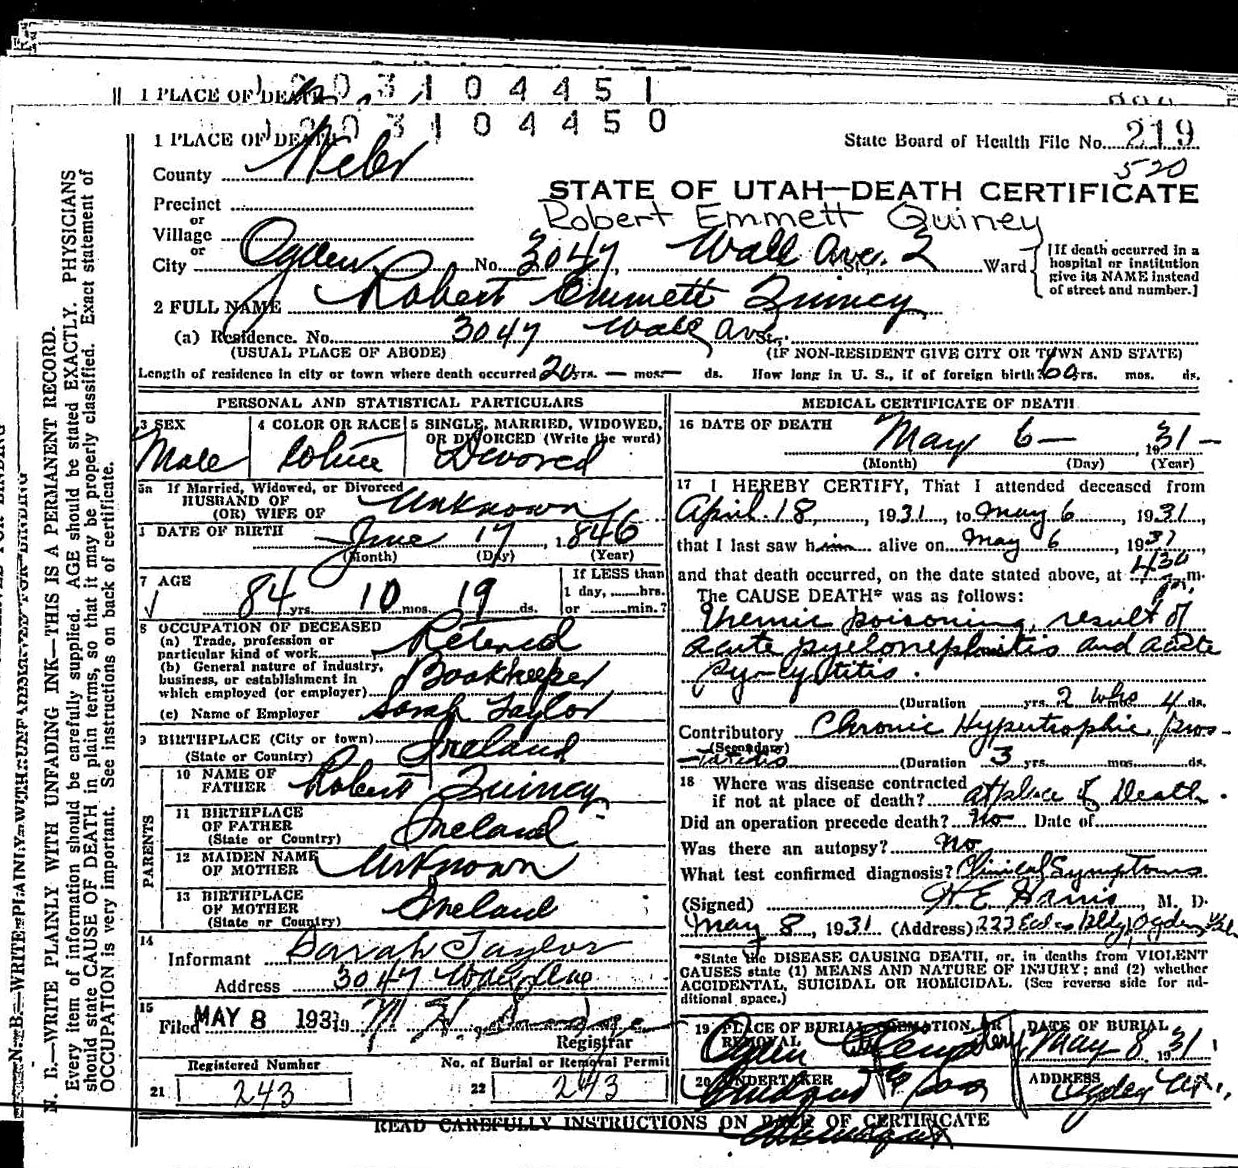 1 PLACE OF DEATH
1 0 0 3 1 0 4 4 5 1
1 0 0 3 1 0 4 4 5 0
1 PLACE OF DEATH
State Board of Health File No. 219
520
County Weber
STATE OF UTAH—DEATH CERTIFICATE
Precinct
Robert Emmett Quiney
or
Village
or
City Ogden No. 3047, Wall Ave. St., 2 Ward
[If death occurred in a
hospital or institution
give its NAME instead
of street and number.]
2 FULL NAME Robert Emmett Quiney
(a) Residence. No. 3047 Wall Ave.
(USUAL PLACE OF ABODE) (IF NON-RESIDENT GIVE CITY OR TOWN AND STATE)
Length of residence in city or town where death occurred 20 yrs. — mos. — ds. How long in U. S., if of foreign birth? 60 yrs. mos. ds.
PERSONAL AND STATISTICAL PARTICULARS
3 SEX
Male
4 COLOR OR RACE
White
5 SINGLE, MARRIED, WIDOWED,
OR DIVORCED (Write the word)
Divorced
5a If Married, Widowed, or Divorced
HUSBAND OF
(OR) WIFE OF Unknown
DATE OF BIRTH June 17, 1846
(Month) (Day) (Year)
7 AGE
84 yrs. 10 mos. 19 ds.
If LESS than
1 day, hrs.
or min.?
8 OCCUPATION OF DECEASED
(a) Trade, profession or
particular kind of work Retered
(b) General nature of industry,
business, or establishment in
which employed (or employer) Bookkeeper
(c) Name of Employer Sarah Taylor
9 BIRTHPLACE (City or town)
(State or Country) Ireland
PARENTS
10 NAME OF
FATHER Robert Quiney
11 BIRTHPLACE
OF FATHER
(State or Country) Ireland
12 MAIDEN NAME
OF MOTHER Unknown
13 BIRTHPLACE
OF MOTHER
(State or Country) Ireland
14
Informant Sarah Taylor
Address 3047 Wall Ave
15
Filed MAY 8 1931
Registrar
Registered Number
21 243
No. of Burial or Removal Permit
22 243
MEDICAL CERTIFICATE OF DEATH
16 DATE OF DEATH May 6— 1931—
(Month) (Day) (Year)
17 I HEREBY CERTIFY, That I attended deceased from
April 18, 1931, to May 6, 1931,
that I last saw him alive on May 6, 1931
and that death occurred, on the date stated above, at 430 p.m.
The CAUSE DEATH* was as follows:
Uremic poisoning, result of
acute pyelonephritis and acute
pyo-cystitis.
(Duration yrs. 2 wks 4 ds.
Contributory Chronic Hypertrophic pros-
(Secondary)
-tatitis (Duration 3 yrs. mos. ds.
18 Where was disease contracted
if not at place of death? at place of Death.
Did an operation precede death? No Date of
Was there an autopsy? No
What test confirmed diagnosis? Clinical Symptoms
(Signed) H. E. Harris, M. D.
May 8, 1931 (Address) Ogden
*State the DISEASE CAUSING DEATH, or, in deaths from VIOLENT
CAUSES state (1) MEANS AND NATURE OF INJURY; and (2) whether
ACCIDENTAL, SUICIDAL OR HOMICIDAL. (See reverse side for ad-
ditional space.)
19 PLACE OF BURIAL, CREMATION, OR
REMOVAL
Ogden Cemetery
DATE OF BURIAL
May 8 1931
20 UNDERTAKER
ADDRESS
Ogden Ut.
READ CAREFULLY INSTRUCTIONS ON BACK OF CERTIFICATE
N. B.—WRITE PLAINLY WITH UNFADING INK—THIS IS A PERMANENT RECORD.
Every item of information should be carefully supplied. AGE should be stated EXACTLY. PHYSICIANS
should state CAUSE OF DEATH in plain terms, so that it may be properly classified. Exact statement of
OCCUPATION is very important. See instructions on back of certificate.